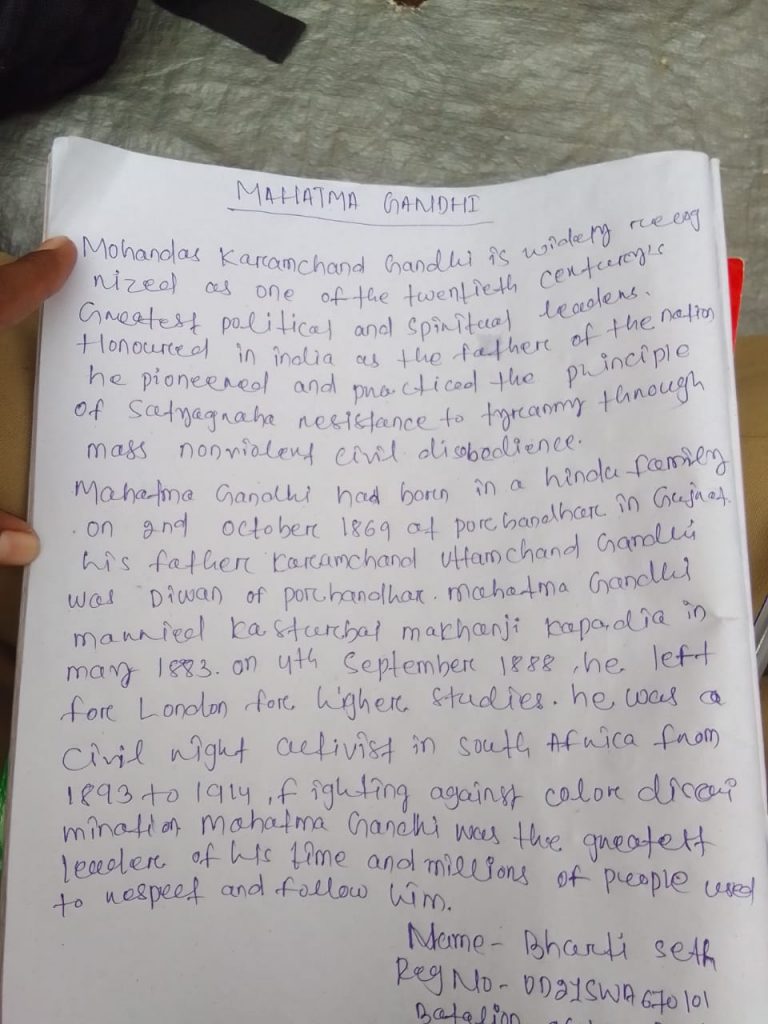 MAHATMA GANDHI
Mohandas Karamchand Gandhi is widely recog
nized as one of the twentieth century's
Greatest political and spiritual leaders.
Honoured in india as the father of the nation
he pioneered and practiced the principle
of Satyagraha resistance to tyranny through
mass nonviolent civil disobedience.
Mahatma Gandhi had born in a hindu family
on 2nd october 1869 at porbandhar in Gujrat.
his father Karamchand Uttamchand Gandhi
was Diwan of porbandhar. Mahatma Gandhi
married Kasturbai makhanji Kapadia in
may 1883. on 4th September 1888, he left
for London for higher studies. he was a
Civil right activist in south Africa from
1893 to 1914, fighting against color discri
mination Mahatma Gandhi was the greatest
leader of his time and millions of people used
to respect and follow him.
Name- Bharti seth
Reg No- OD21SWA670101